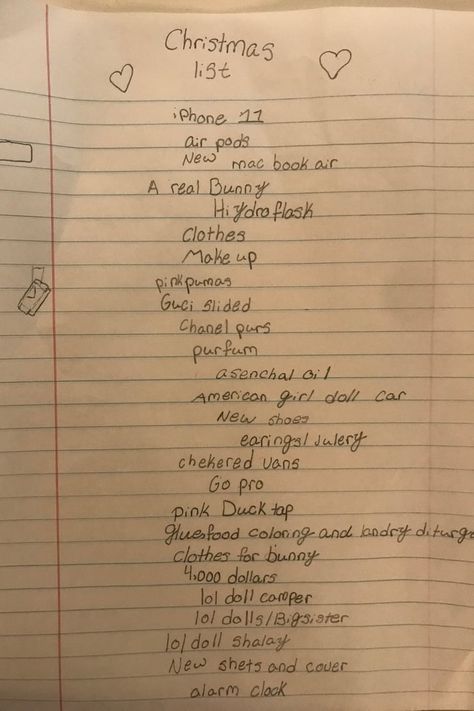 Christmas
list
iPhone 11
air pods
New mac book air
A real Bunny
Hiydroflask
Clothes
Make up
pink pumas
Guci slided
Chanel purs
purfum
asenchal oil
American girl doll car
New shoes
earings/julery
chekered vans
Go pro
pink Duck tap
glue food coloring and landry diturge
clothes for bunny
4,000 dollars
lol doll camper
lol dolls/Big sister
lol doll shalay
New shets and cover
alarm clock